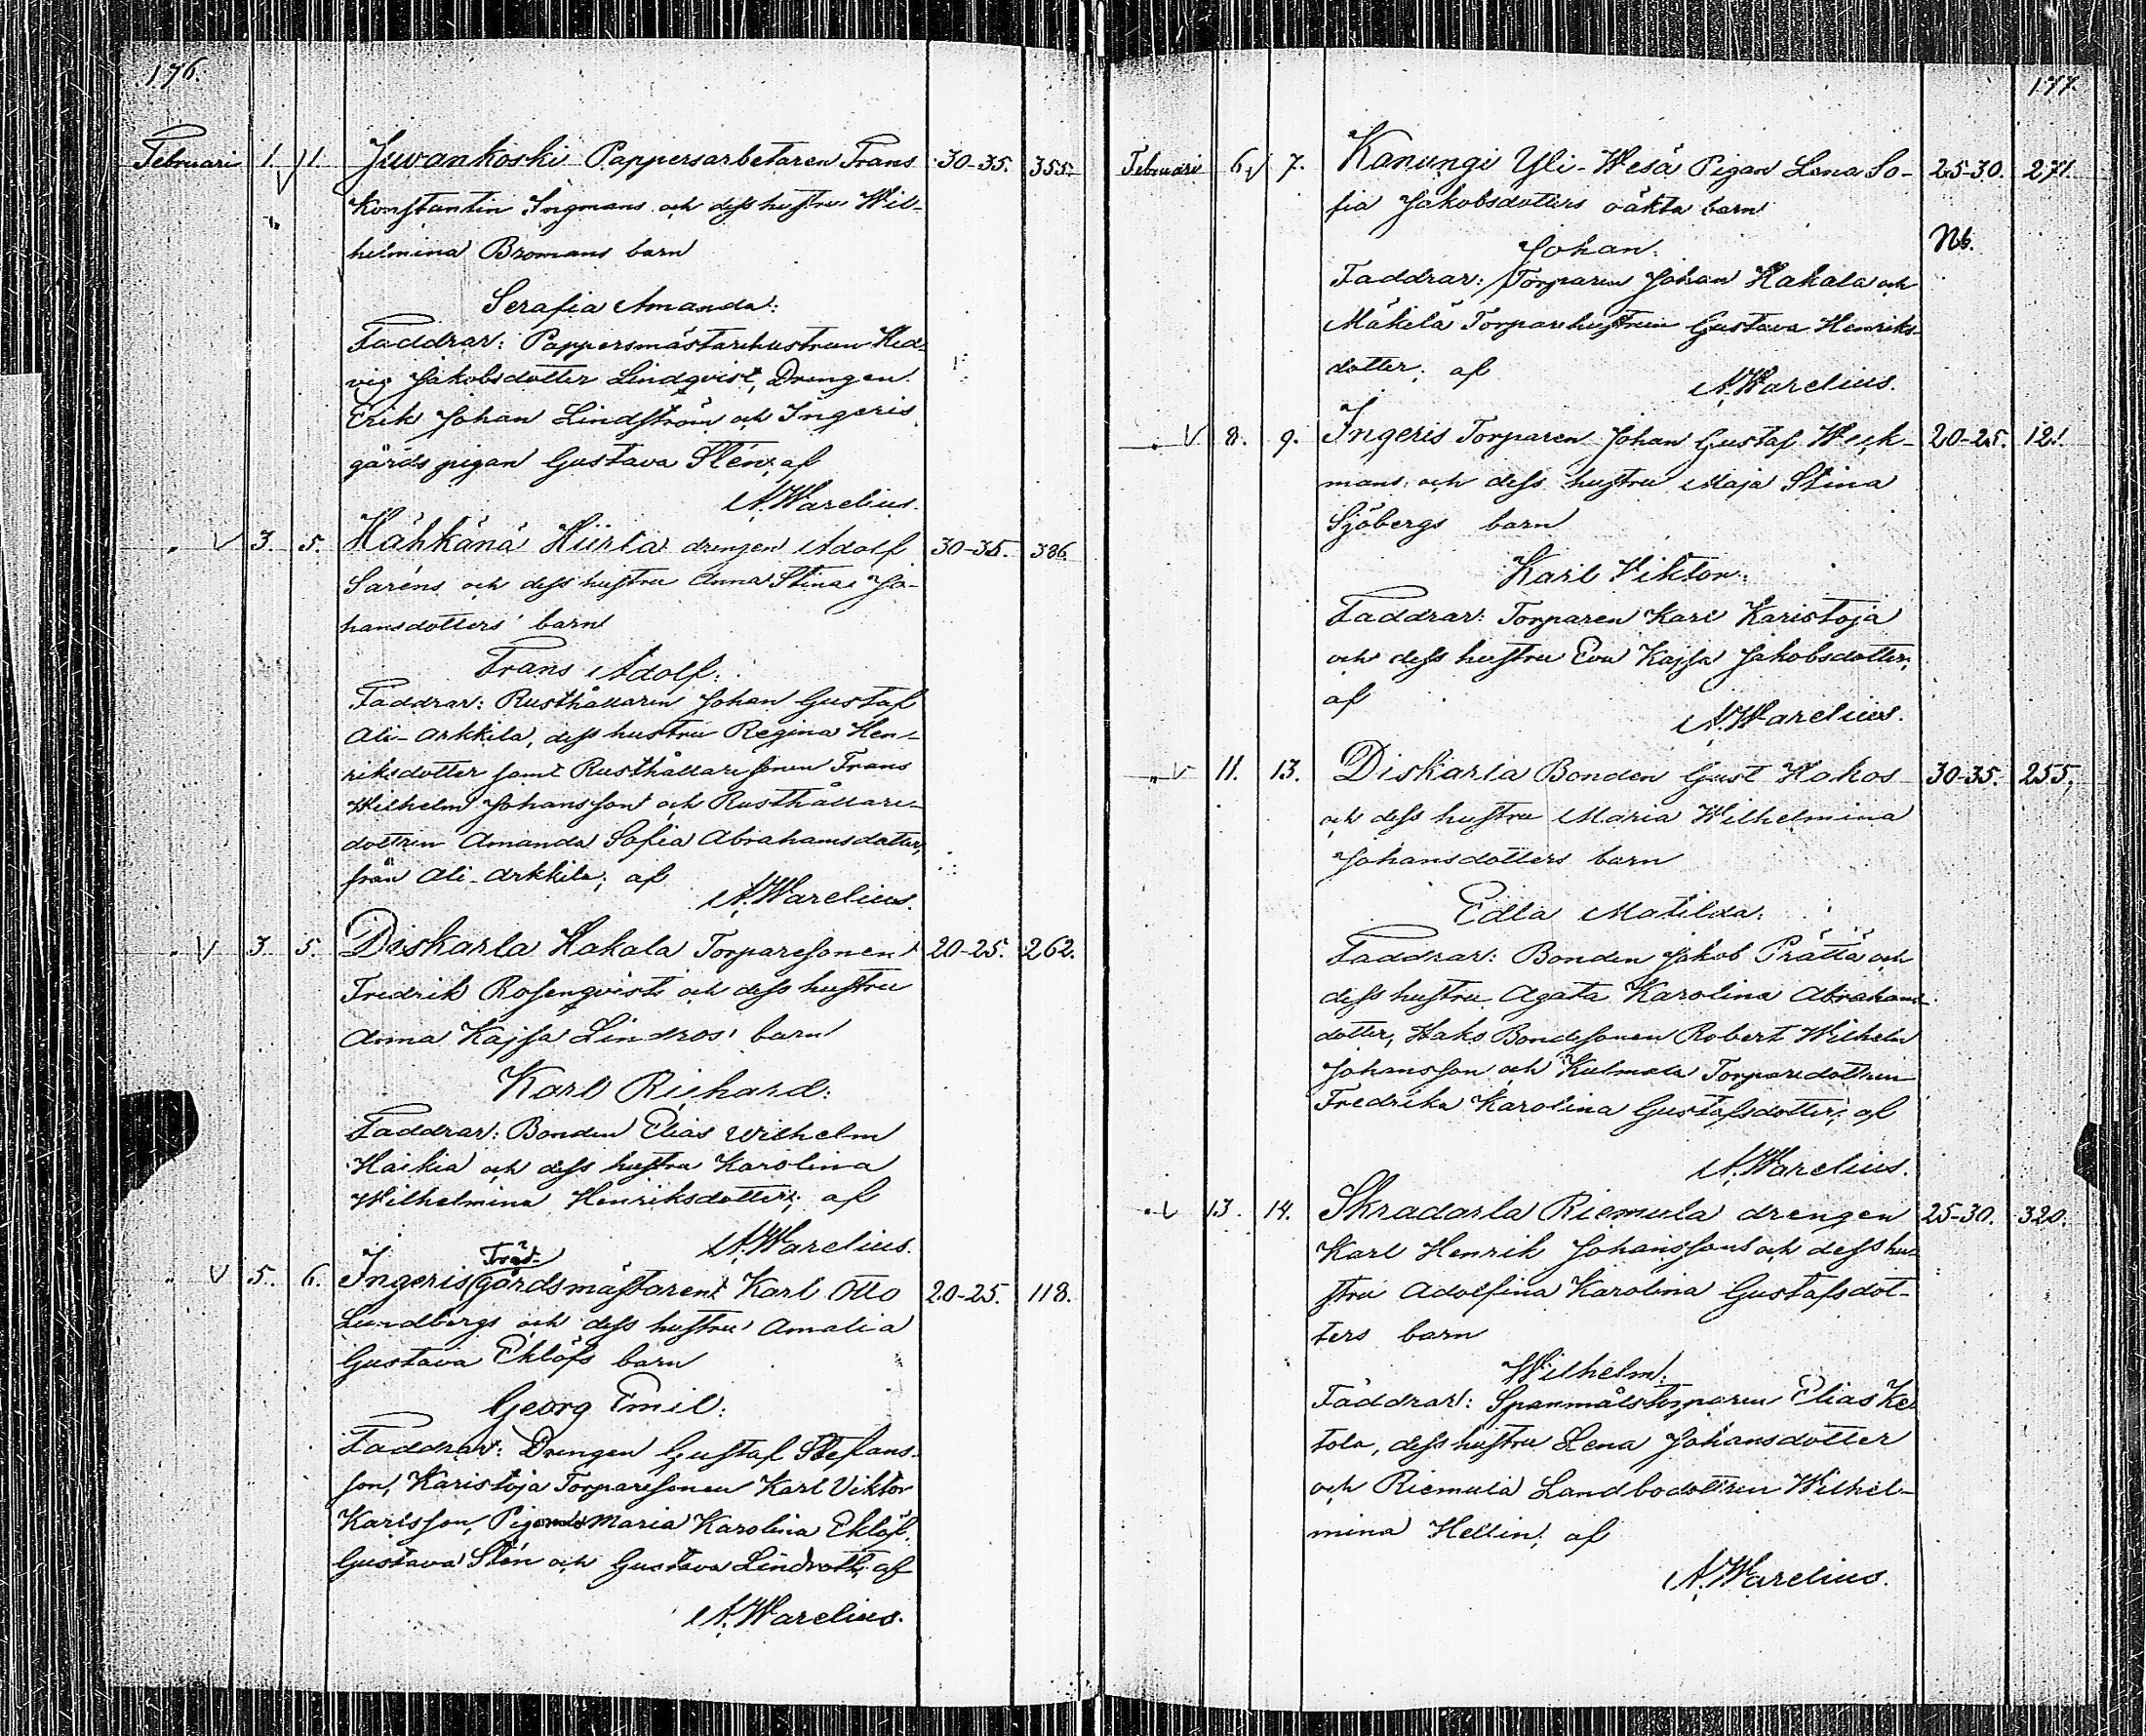 176.
Februari 1. 1. Juvankoski Pappersarbetaren Frans 30-35. 355.
Konstantin Ingmans och dess hustru Wil-
helmina Bromans barn
Serafia Amanda:
Faddrar: Pappersmästarehustrun Hed-
vig Jakobsdotter Lindqvist, Drengen
Erik Johan Lindström och Ingeris
gårds pigan Gustava Stén; af
A. Warelius.
" 3. 5. Hähkänä Hiirla drengen Adolf 30-35. 386.
Saréns och dess hustru Anna Stina Jo-
hansdotters barn
Frans Adolf:
Faddrar: Rusthållaren Johan Gustaf
Ali-Arkkila, dess hustru Regina Hen-
riksdotter samt Rusthållaresonen Frans
Wilhelm Johansson och Rusthållare-
dottren Amanda Sofia Abrahamsdotter,
från Ali-Arkkila; af
A. Warelius.
" 3 5. Diskarla Hakala Torparesonen 20-25. 262.
Fredrik Rosenqvists och dess hustru
Anna Kajsa Lindros' barn
Karl Richard:
Faddrar: Bonden Elias Wilhelm
Haikia och dess hustru Karolina
Wilhelmina Henriksdotter; af
A. Warelius.
Träd-
" 5. 6. Ingeris gårdsmästaren Karl Otto 20-25. 118.
Lundbergs och dess hustru Amalia
Gustava Eklöfs barn
Georg Emil:
Faddrar: Drengen Gustaf Stefans-
son, Karistoja Torparesonen Karl Viktor
Karlsson, Pigorna Maria Karolina Eklöf,
Gustava Stén och Gustava Lindroth; af
A. Warelius.
177.
Februari 6. 7. Kanungi Yli-Wesä Pigan Lena So- 25-30. 271.
fia Jakobsdotters oäkta barn
Nb.
Johan:
Faddrar: Torparen Johan Hakala och
Mäkilä Torparehustrun Gustava Henriks-
dotter; af
A. Warelius.
" 8. 9. Ingeris Torparen Johan Gustaf Weck- 20-25. 121.
mans och dess hustru Maja Stina
Sjöbergs barn
Karl Viktor:
Faddrar: Torparen Karl Karistoja
och dess hustru Eva Kajsa Jakobsdotter,
af
A. Warelius.
" 11. 13. Diskarla Bonden Gust. Hakos 30-35. 255.
och dess hustru Maria Wilhelmina
Johansdotters barn
Edla Matilda:
Faddrar: Bonden Jakob Prättä och
dess hustru Agata Karolina Abrahams-
dotter, Hako Bondesonen Robert Wilhelm
Johansson och Kulmala Torparedottren
Fredrika Karolina Gustafsdotter; af
A. Warelius.
" 13. 14. Skradarla Riemula drengen 25-30. 320.
Karl Henrik Johanssons och dess hu-
stru Adolfina Karolina Gustafsdot-
ters barn
Wilhelm:
Faddrar: Spanmålstorparen Elias Ke-
tola, dess hustru Lena Johansdotter
och Riemula Landbodottren Wilhel-
mina Hellin; af
A. Warelius.